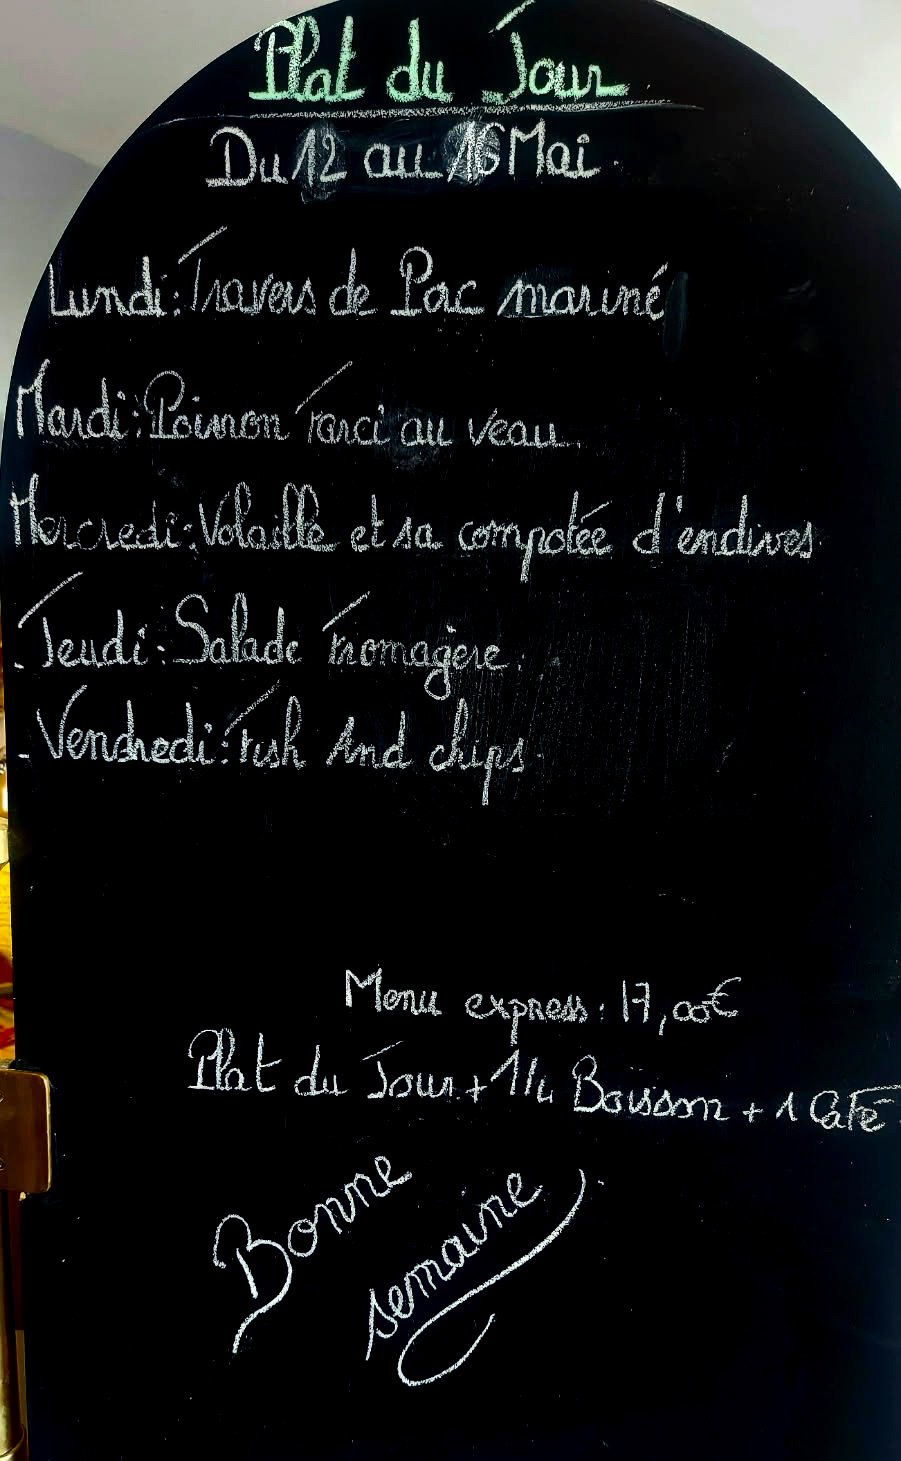 Plat du Jour
Du 12 au 16 Mai
Lundi: Travers de Porc mariné
Mardi: Poivron Farci au veau
Mercredi: Volaille et sa compotée d'endives
- Jeudi: Salade Fromagère
- Vendredi: Fish And chips
Menu express: 17,00€
Plat du Jour + 1/4 Boisson + 1 Café
Bonne
semaine